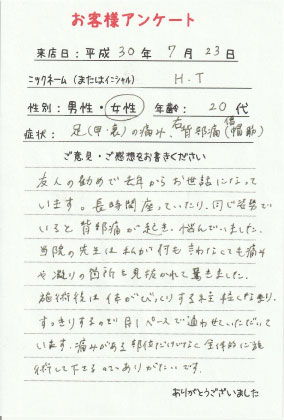 お客様アンケート
来店日：平成30年7月23日
ニックネーム（またはイニシャル） H.T
性別：男性・女性 年齢：20代
症状：足（甲・裏）の痛み、右背部痛（僧帽筋）
ご意見・ご感想をお書きください
友人の勧めで去年からお世話になって
います。長時間座っていたり、同じ姿勢で
いると背部痛が起き、悩んでいました。
当院の先生は私が何も言わなくても痛み
や凝りの箇所を見抜かれて驚きました。
施術後は体がびっくりする程軽くなり、
すっきりするので月1ペースで通わせていただいて
います。痛みがある部位だけでなく全体的に施
術して下さるのでありがたいです。
ありがとうございました